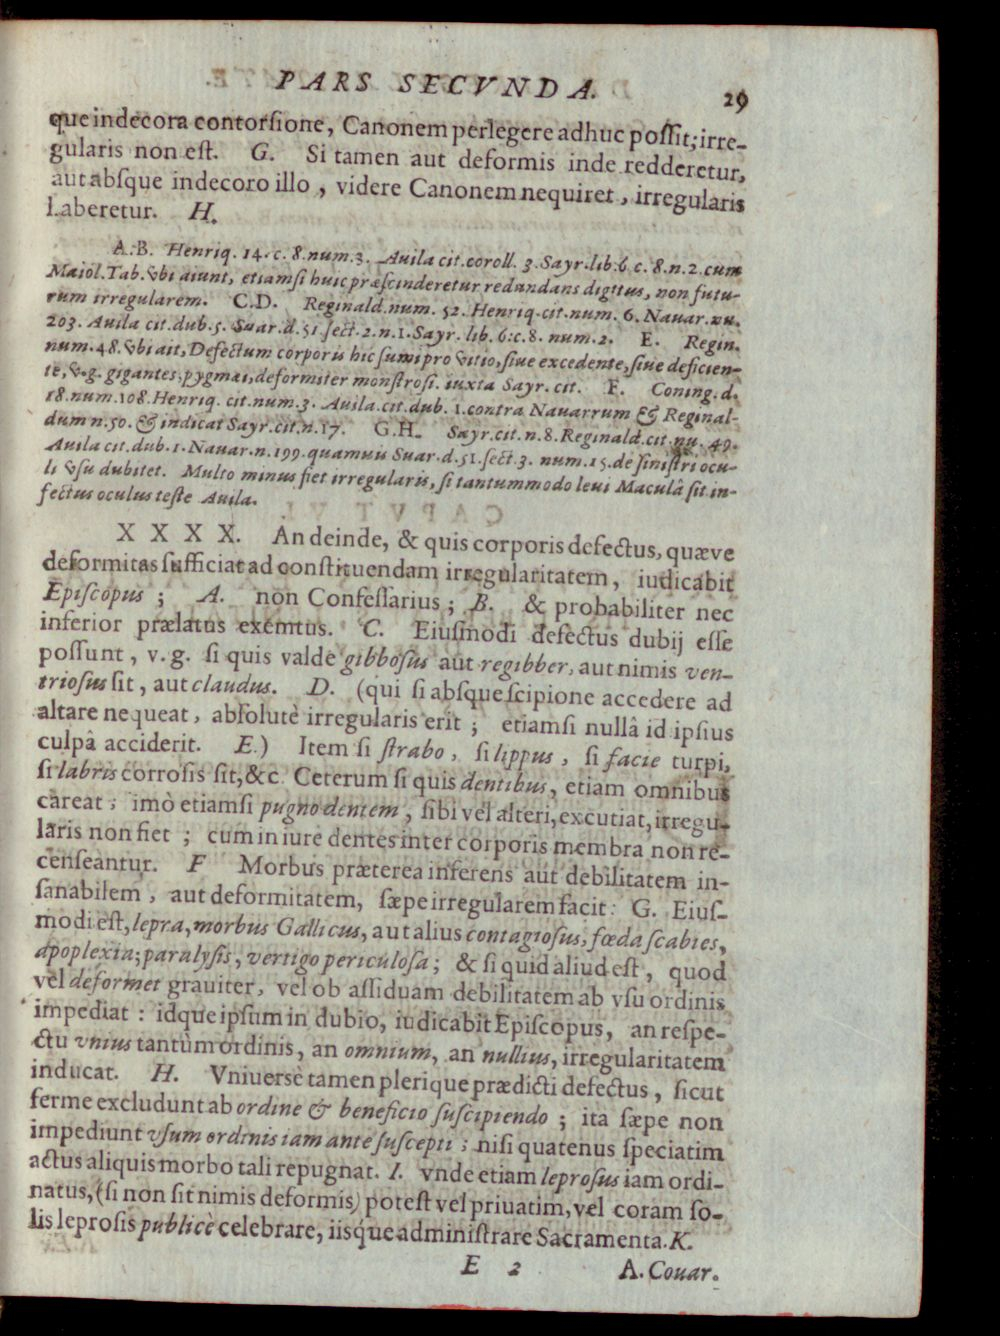 PARS SECVNDA. 29
que indecora contorſione, Canonem perlegere adhuc poſſit; irre-
gularis non eſt. G. Si tamen aut deformis inde redderetur,
aut abſque indecoro illo, videre Canonem nequiret, irregularis
haberetur. H.
A.B. Henriq. 14. c. 8. num. 3. Auila cit. coroll. 3. Sayr. lib. 6 c. 8. n. 2. cum
Maiol. Tab. vbi aiunt, etiamſi huic præſcinderetur redundans digitus, non futu-
rum irregularem. C.D. Reginald. num. 52. Henriq. cit. num. 6. Nauar. nu.
203. Auila cit. dub. 5. Suar. d. 51. ſect. 2. n. 1. Sayr. lib. 6. c. 8. num. 2. E. Regin.
num. 48. vbi ait, Defectum corporis hic ſumi pro vitio, ſiue excedente, ſiue deficien-
te, v.g. gigantes, pygmæi, deformiter monſtroſi. iuxta Sayr. cit. F. Coning. d.
18. num. 108. Henriq. cit. num. 3. Auila. cit. dub. 1. contra Nauarrum & Reginal-
dum n. 50. & indicat Sayr. cit. n. 17. G.H. Sayr. cit. n. 8. Reginald. cit. nu. 49.
Auila cit. dub. 1. Nauar. n. 199. quamuis Suar. d. 51. ſect. 3. num. 15. de ſiniſtri ocu-
li vſu dubitet. Multo minus fiet irregularis, ſi tantummodo leui Maculâ ſit in-
fectus oculus teſte Auila.
XXXX. An deinde, & quis corporis defectus, quæve
deformitas ſufficiat ad conſtituendam irregularitatem, iudicabit
Epiſcopus; A. non Confeſſarius; B. & probabiliter nec
inferior prælatus exemtus. C. Eiuſmodi defectus dubij eſſe
poſſunt, v. g. ſi quis valde gibboſus aut regibber, aut nimis ven-
trioſus ſit, aut claudus. D. (qui ſi abſque ſcipione accedere ad
altare nequeat, abſolutè irregularis erit; etiamſi nullâ id ipſius
culpâ acciderit. E.) Item ſi ſtrabo, ſi lippus, ſi facie turpi,
ſi labris corroſis ſit, &c. Ceterum ſi quis dentibus, etiam omnibus
careat; imò etiamſi pugno dentem, ſibi vel alteri, excutiat, irregu-
laris non fiet; cum in iure dentes inter corporis membra non re-
cenſeantur. F Morbus præterea inferens aut debilitatem in-
ſanabilem, aut deformitatem, ſæpe irregularem facit: G. Eiuſ-
modi eſt, lepra, morbus Gallicus, aut alius contagioſus, fœda ſcabies,
apoplexia; paralyſis, vertigo periculoſa; & ſi quid aliud eſt, quod
vel deformet grauiter, vel ob aſſiduam debilitatem ab vſu ordinis
impediat: idque ipſum in dubio, iudicabit Epiſcopus, an reſpe-
ctu vnius tantùm ordinis, an omnium, an nullius, irregularitatem
inducat. H. Vniuersè tamen plerique prædicti defectus, ſicut
ferme excludunt ab ordine & beneficio ſuſcipiendo; ita ſæpe non
impediunt vſum ordinis iam ante ſuſcepti; niſi quatenus ſpeciatim
actus aliquis morbo tali repugnat. I. vnde etiam leproſus iam ordi-
natus, (ſi non ſit nimis deformis) poteſt vel priuatim, vel coram ſo-
lis leproſis publicè celebrare, iiſque adminiſtrare Sacramenta. K.
E 2 A. Couar.